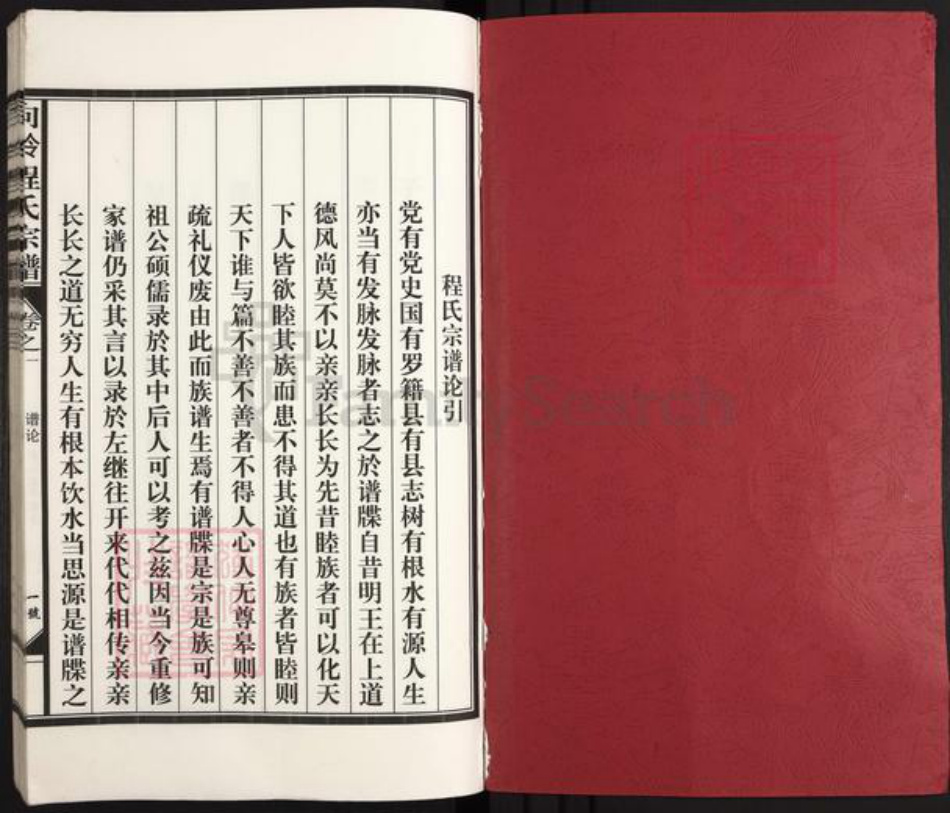 程氏宗谱论引
党有党史国有罗籍县有县志树有根水有源人生
亦当有发脉发脉者志之於谱牒自昔明王在上道
德风尚莫不以亲亲长长为先昔睦族者可以化天
下人皆欲睦其族而患不得其道也有族者皆睦则
天下谁与篇不善不善者不得人心人无尊皋则亲
疏礼仪废由此而族谱生焉有谱牒是宗是族可知
祖公硕儒录於其中后人可以考之兹因当今重修
家谱仍采其言以录於左继往开来代代相传亲亲
长长之道无穷人生有根本饮水当思源是谱牒之
程氏宗谱
卷之一
谱论
一號
FamilySearch